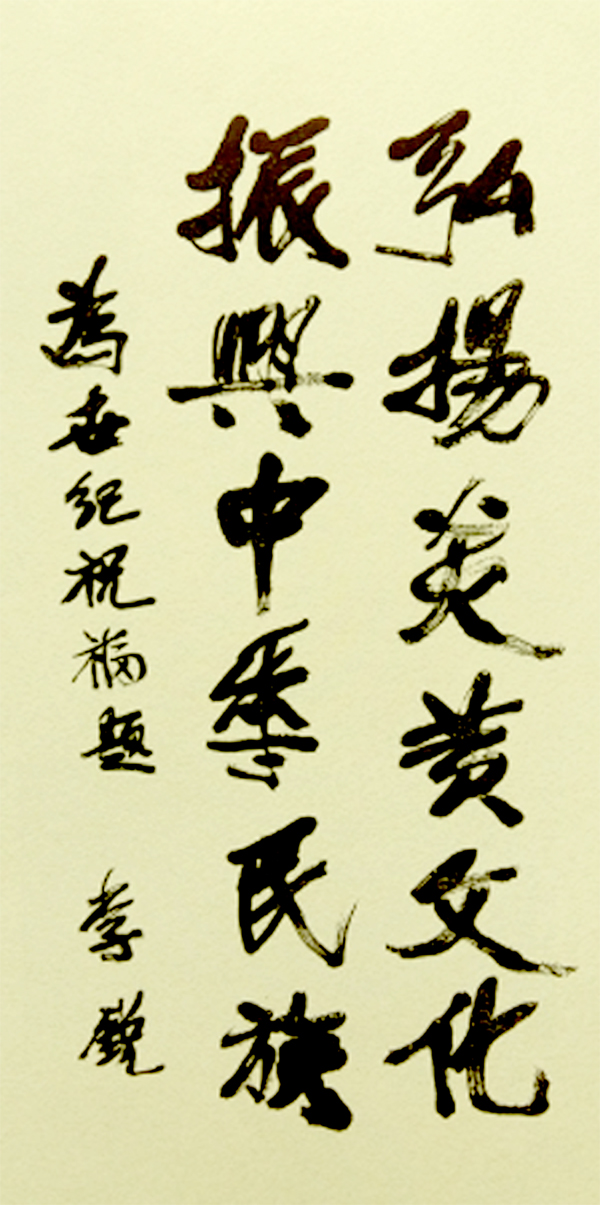 弘揚炎黄文化
振興中華民族
為世紀祝福題 李銳